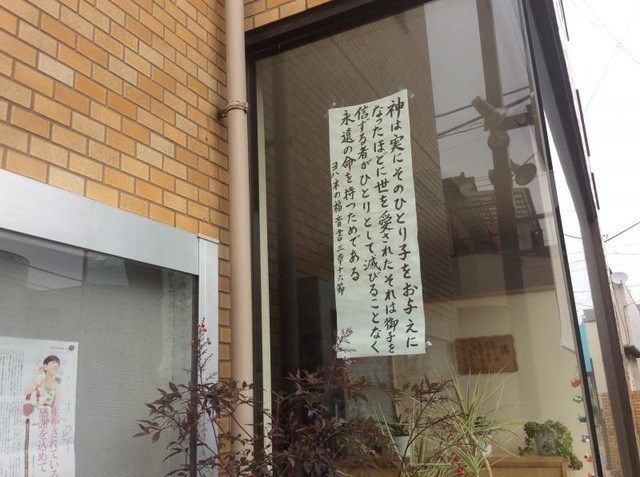 神は実にそのひとり子をお与えに
なったほどに世を愛されたそれは御子を
信ずる者がひとりとして滅びることなく
永遠の命を持つためである
ヨハネの福音書三章十六節
生かされている
感謝を込めて